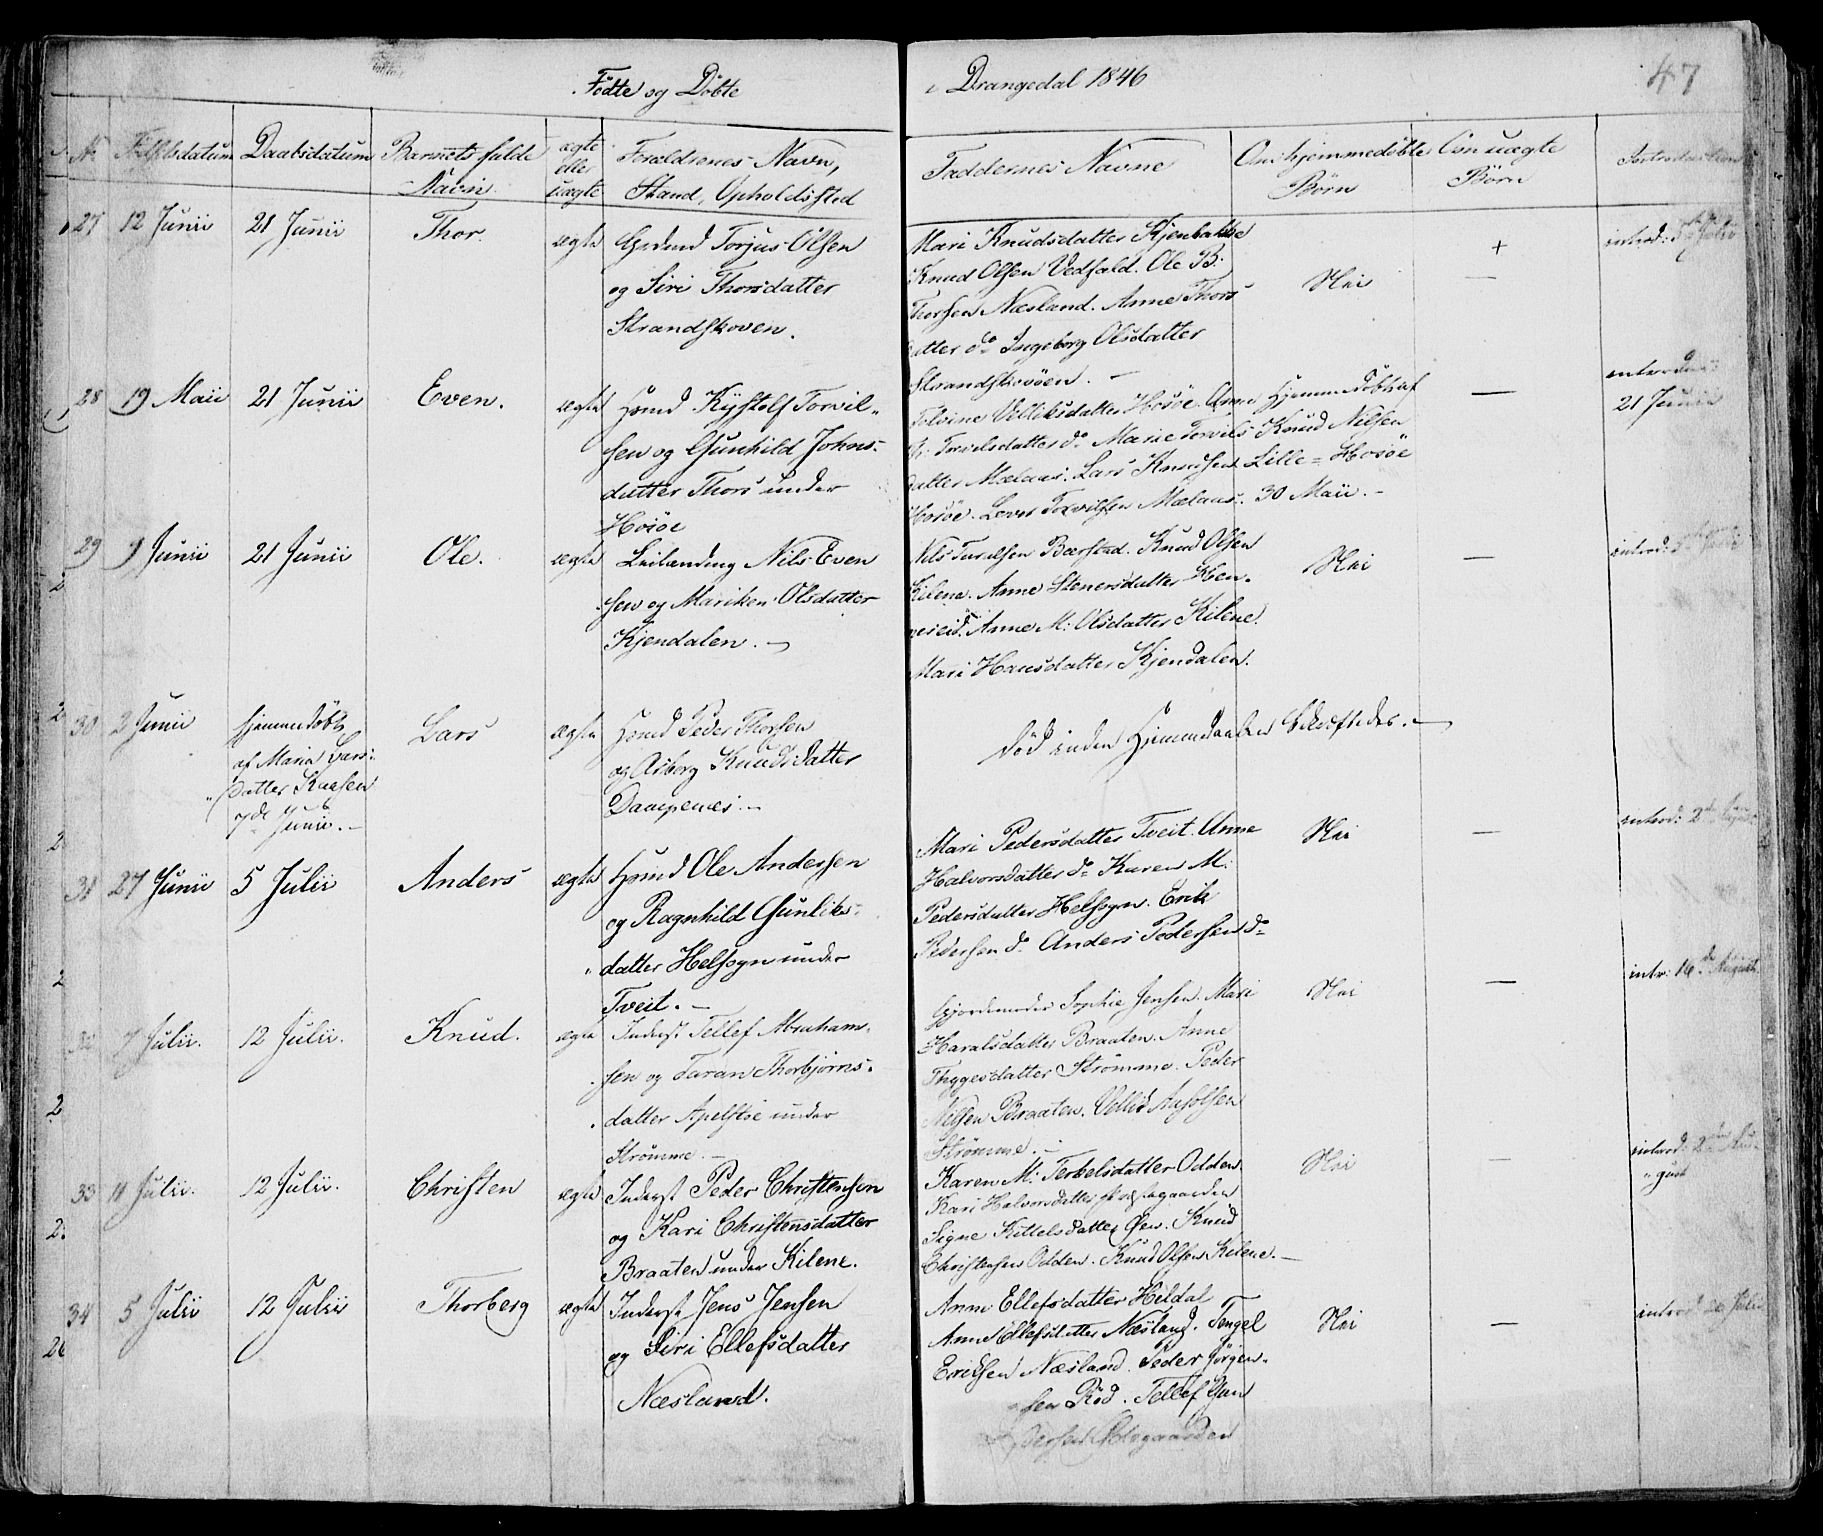 Fødte og Døbte
i Drangedal 1846
47
No Fødselsdatum Daabsdatum Barnets fulde Navn ægte eller uægte Forældrenes Navn, Stand, Opholdssted
Faddernes Navne Om hjemmedøbte Børn Om uægte Børn Introduction
27 12 Junii 21 Junii Thor ægte Torjus Olsen
og Siri Thorsdatter
Strandskoven.
Mari Knudsdatter
Knud Olsen Vedfald. Ole B.
Thorsen Næsland. Anne Thors
datter do Ingeborg Olsdatter
Strandskovøen. –
Nei
+
—
introd:
28 19 Maii 21 Junii Even. ægte Hmd Torvil-
sen og Gunhild Johns-
datter Thors under
Hosøe
Hosøe. Anne
Torvilsdatter do Marie Torvils
datter Mælaas. Lars Knudsen
Hosøe. Torvilsen Mælaas.
Hjemmedøbt af
Knud Nilsen
Lille = Hosøe
30 Maii. –
—
21 Junii
29 9 Junii 21 Junii Ole. ægte Leilænding Nils Even
sen og Mariken Olsdatter
Kjendalen. –
Nils Bærstad. Knud Olsen
Kilene. Anne Stenersdatter Hen-
neseid. Anne M: Olsdatter Kilene.
Mari Hansdatter Kjendalen.
Nei
—
introd:
30 2 Junii hjemmedøbt
af Maria Lars-
datter Kaasen
7de Junii. –
Lars ægte Hmd Peder Thorsen
og Asborg Knudsdatter
død inden Hjemmedaaben bekræftedes. –
31 27 Junii 5 Julii Anders ægte Hmd Ole Andersen
og Ragnhild Gunliks-
datter Helsogn under
Tveit. –
Mari Pedersdatter Tveit. Anne
Halvorsdatter do Karen M:
Pedersdatter Helsogn. Erik
Pedersen do Anders Pedersen do
Nei
—
introd: 2
32 7 Julii. 12 Julii. Knud. ægte Inderst Tellef Abrahams-
sen og Taran Thorbjørns-
datter under
Strømme. –
Gjordemoder Sophie Jensen. Mari
Haralsdatter Braaten. Anne
Thygesdatter Strømme. Peder
Nilsen Braaten.
Strømme. –
Nei
—
intr: 16de August
33 11 Julii. 12 Julii. Christen ægte Inderst Peder Christensen
og Kari Christensdatter
Braaten under Kilene.
Karen M: Terkelsdatter Odden
Kari Halvorsdatter Præstegaarden
Signe Kittelsdatter Øen. Knud
Christensen Odden. Knud Olsen Kilene. –
Nei
—
introd: 2den Au-
gust
34 5 Julii 12 Julii Thorberg ægte Inderst Jens Jensen
og Siri Ellefsdatter
Næsland.
Anne Ellefsdatter Heldal
Anne Ellefsdatter Næsland. Tengel
Eriksen Næsland. Peder Jørgen-
sen Rød. Tellef Gun
Nei
—
introd: Julii